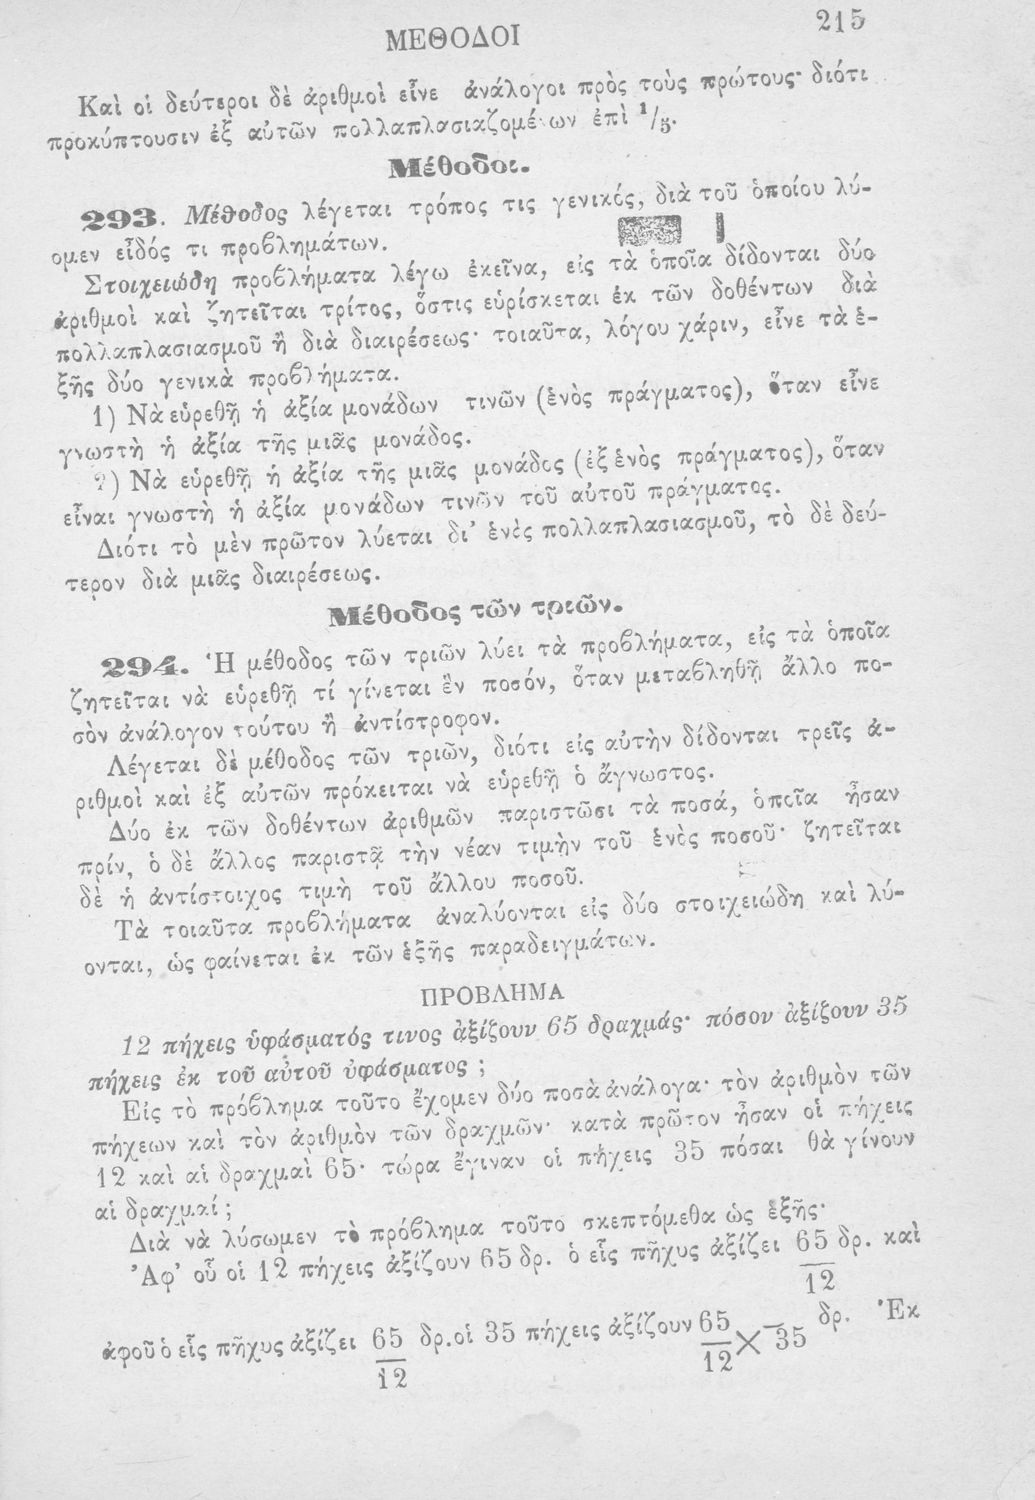 ΜΕΘΟΔΟΙ 215
Καὶ οἱ δεύτεροι δὲ ἀριθμοὶ εἶνε ἀνάλογοι πρὸς τοὺς πρώτους· διότι
προκύπτουσιν ἐξ αὐτῶν πολλαπλασιαζομένων ἐπὶ 1/5.
Μέθοδοι.
293. Μέθοδος λέγεται τρόπος τις γενικός, διὰ τοῦ ὁποίου λύ-
ομεν εἶδός τι προβλημάτων.
Στοιχειώδη προβλήματα λέγω ἐκεῖνα, εἰς τὰ ὁποῖα δίδονται δύο
ἀριθμοὶ καὶ ζητεῖται τρίτος, ὅστις εὑρίσκεται ἐκ τῶν δοθέντων διὰ
πολλαπλασιασμοῦ ἢ διὰ διαιρέσεως· τοιαῦτα, λόγου χάριν, εἶνε τὰ ἑ-
ξῆς δύο γενικὰ προβλήματα.
1) Νὰ εὑρεθῇ ἡ ἀξία μονάδων τινῶν (ἑνὸς πράγματος), ὅταν εἶνε
γνωστὴ ἡ ἀξία τῆς μιᾶς μονάδος.
2) Νὰ εὑρεθῇ ἡ ἀξία τῆς μιᾶς μονάδος (ἐξ ἑνὸς πράγματος), ὅταν
εἶναι γνωστὴ ἡ ἀξία μονάδων τινῶν τοῦ αὐτοῦ πράγματος.
Διότι τὸ μὲν πρῶτον λύεται δι' ἑνὸς πολλαπλασιασμοῦ, τὸ δὲ δεύ-
τερον διὰ μιᾶς διαιρέσεως.
Μέθοδος τῶν τριῶν.
294. Ἡ μέθοδος τῶν τριῶν λύει τὰ προβλήματα, εἰς τὰ ὁποῖα
ζητεῖται νὰ εὑρεθῇ τί γίνεται ἓν ποσόν, ὅταν μεταβληθῇ ἄλλο πο-
σὸν ἀνάλογον τούτου ἢ ἀντίστροφον.
Λέγεται δὲ μέθοδος τῶν τριῶν, διότι εἰς αὐτὴν δίδονται τρεῖς ἀ-
ριθμοὶ καὶ ἐξ αὐτῶν πρόκειται νὰ εὑρεθῇ ὁ ἄγνωστος.
Δύο ἐκ τῶν δοθέντων ἀριθμῶν παριστῶσι τὰ ποσά, ὁποῖα ἦσαν
πρίν, ὁ δὲ ἄλλος παριστᾷ τὴν νέαν τιμὴν τοῦ ἑνὸς ποσοῦ· ζητεῖται
δὲ ἡ ἀντίστοιχος τιμὴ τοῦ ἄλλου ποσοῦ.
Τὰ τοιαῦτα προβλήματα ἀναλύονται εἰς δύο στοιχειώδη καὶ λύ-
ονται, ὡς φαίνεται ἐκ τῶν ἑξῆς παραδειγμάτων.
ΠΡΟΒΛΗΜΑ
12 πήχεις ὑφάσματός τινος ἀξίζουν 65 δραχμάς· πόσον ἀξίζουν 35
πήχεις ἐκ τοῦ αὐτοῦ ὑφάσματος ;
Εἰς τὸ πρόβλημα τοῦτο ἔχομεν δύο ποσὰ ἀνάλογα· τὸν ἀριθμὸν τῶν
πήχεων καὶ τὸν ἀριθμὸν τῶν δραχμῶν· κατὰ πρῶτον ἦσαν οἱ πήχεις
12 καὶ αἱ δραχμαὶ 65· τώρα ἔγιναν οἱ πήχεις 35 πόσαι θὰ γίνουν
αἱ δραχμαί ;
Διὰ νὰ λύσωμεν τὸ πρόβλημα τοῦτο σκεπτόμεθα ὡς ἑξῆς·
'Αφ' οὗ οἱ 12 πήχεις ἀξίζουν 65 δρ. ὁ εἷς πῆχυς ἀξίζει 65/12 δρ. καὶ
ἀφοῦ ὁ εἷς πῆχυς ἀξίζει 65/12 δρ. οἱ 35 πήχεις ἀξίζουν 65/12 × 35 δρ. Ἐκ